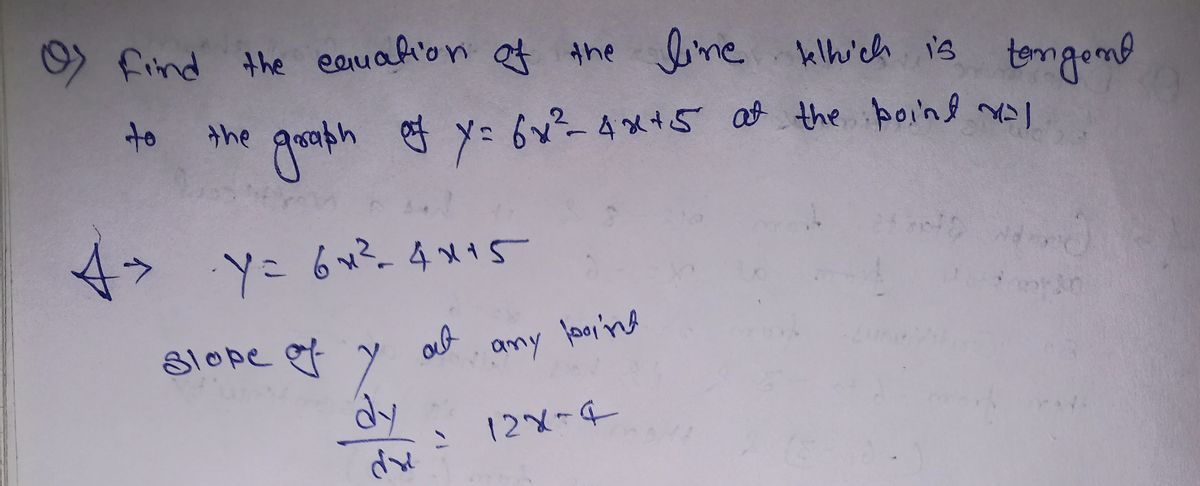 Q) Find the equation of the line which is tangent
to the graph of y = 6x² - 4x + 5 at the point x=1
A → y = 6x² - 4x + 5
slope of y at any point
dy/dx = 12x - 4